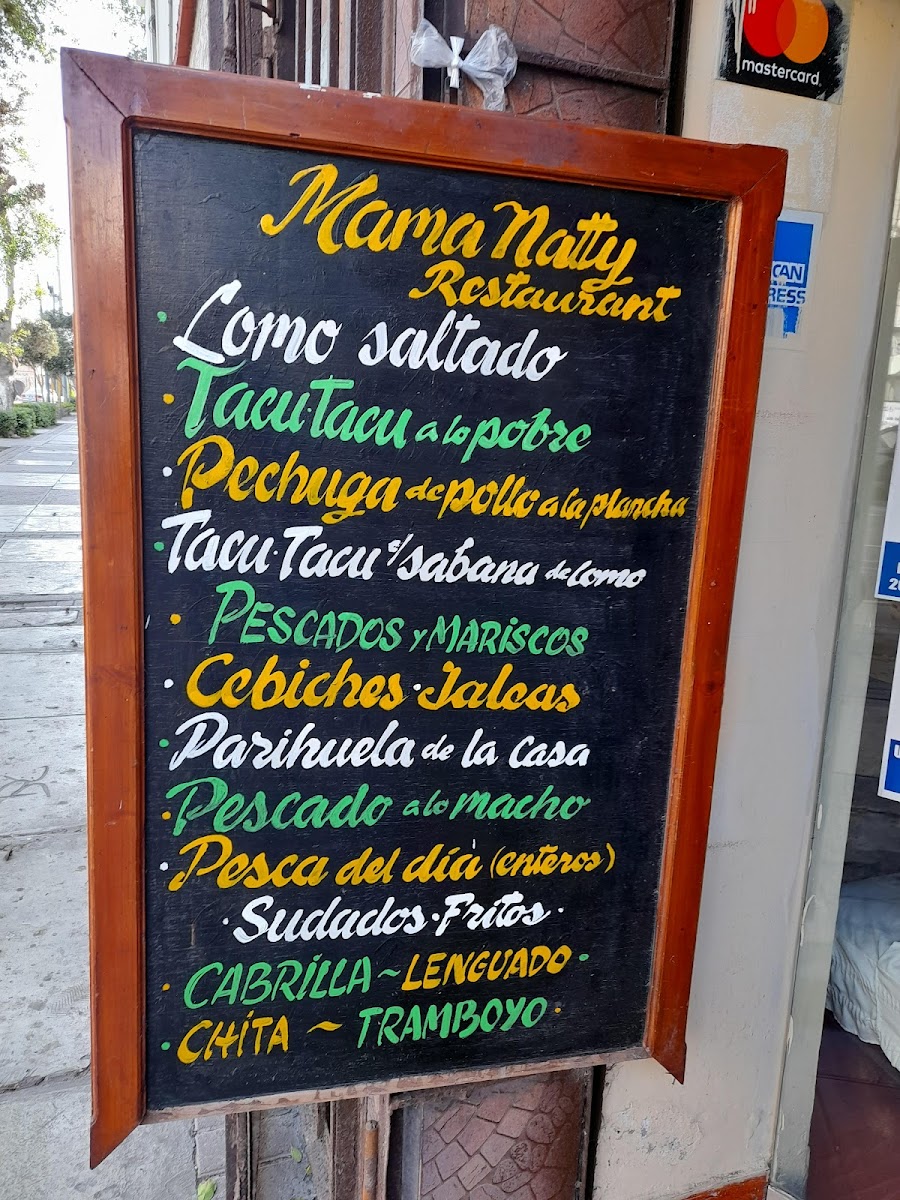 mastercard
CAN
RESS
Mama Natty
Restaurant
Lomo saltado
Tacu·Tacu a lo pobre
Pechuga de pollo a la plancha
Tacu·Tacu s/sabana de lomo
PESCADOS y MARISCOS
Cebiches·Jaleas
Parihuela de la Casa
Pescado a lo macho
Pesca del día (enteros)
·Sudados·Fritos·
CABRILLA ~ LENGUADO·
CHITA ~ TRAMBOYO·